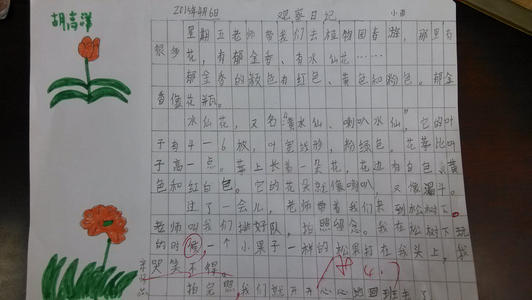 胡高洋
2015年4月6日 观察日记 小雨
星期五老师带我们去植物园春游，那里有
很多花，有郁金香、有水仙花……
郁金香的颜色有红色、黄色和粉色。郁金
香像花瓶。
水仙花，又名“黄水仙、喇叭水仙，它的叶
子有4一6放，叶宽线形，粉绿色，花茎比叶
子高一点。茎上长着一朵花，花边有白色、黄
色和红白色。它的花朵就像喇叭，又像漏斗。
过了一会儿，老师带着我们来到松树下。
老师叫我们排好队，拍照留念。我在松树下玩
的时候一个小果子一样的松果打在我头上，我
哭笑不得。
拍完照，我们就开开心心地回班去了